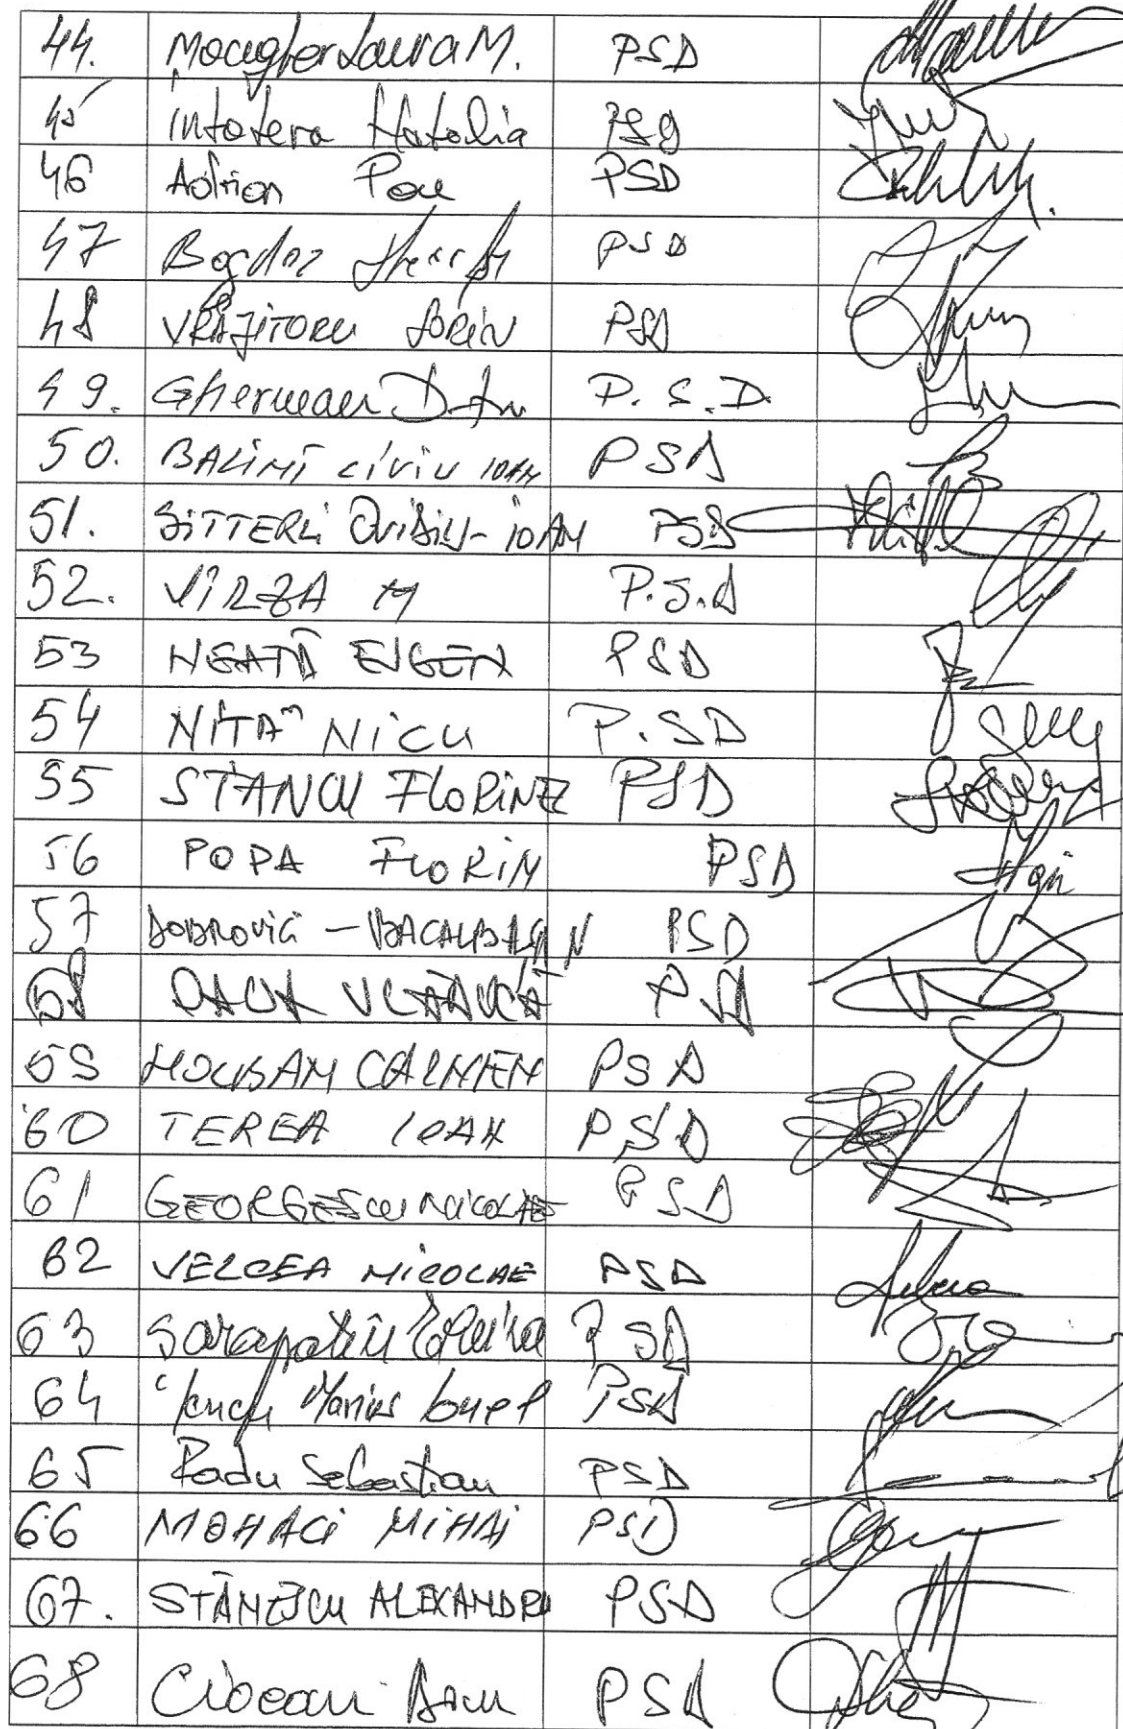 44. Mocioflor Laura M. PSD
45 Intotero Natalia PSD
46 Adrian Pau PSD
47 Bogdan PSD
48 VRĂJITORU SORIN PSD
49. Gherman D-tru P.S.D.
50. BALINT LIVIU IOAN PSD
51. SITTERLI OVIDIU-IOAN PSD
52. VIRZA M P.S.d
53 NEATĂ EUGEN PSD
54 NITĂ NICU P.SD
55 STANCU FLORINEL PSD
56 POPA FLORIN PSD
57 DOBROVICI - BACALBAȘA N PSD
58 OANA VLĂDUCĂ PSD
59 HOLBAN CARMEN PSD
60 TEREA IOAN PSD
61 GEORGESCU NICOLAE PSD
62 VELCEA NICOLAE PSD
63 PSD
64 Iancu Marius Ionel PSD
65 Radu Sebastian PSD
66 MOHACI MIHAI PSD
67. STĂNESCU ALEXANDRU PSD
68 Ciocan Dan PSD